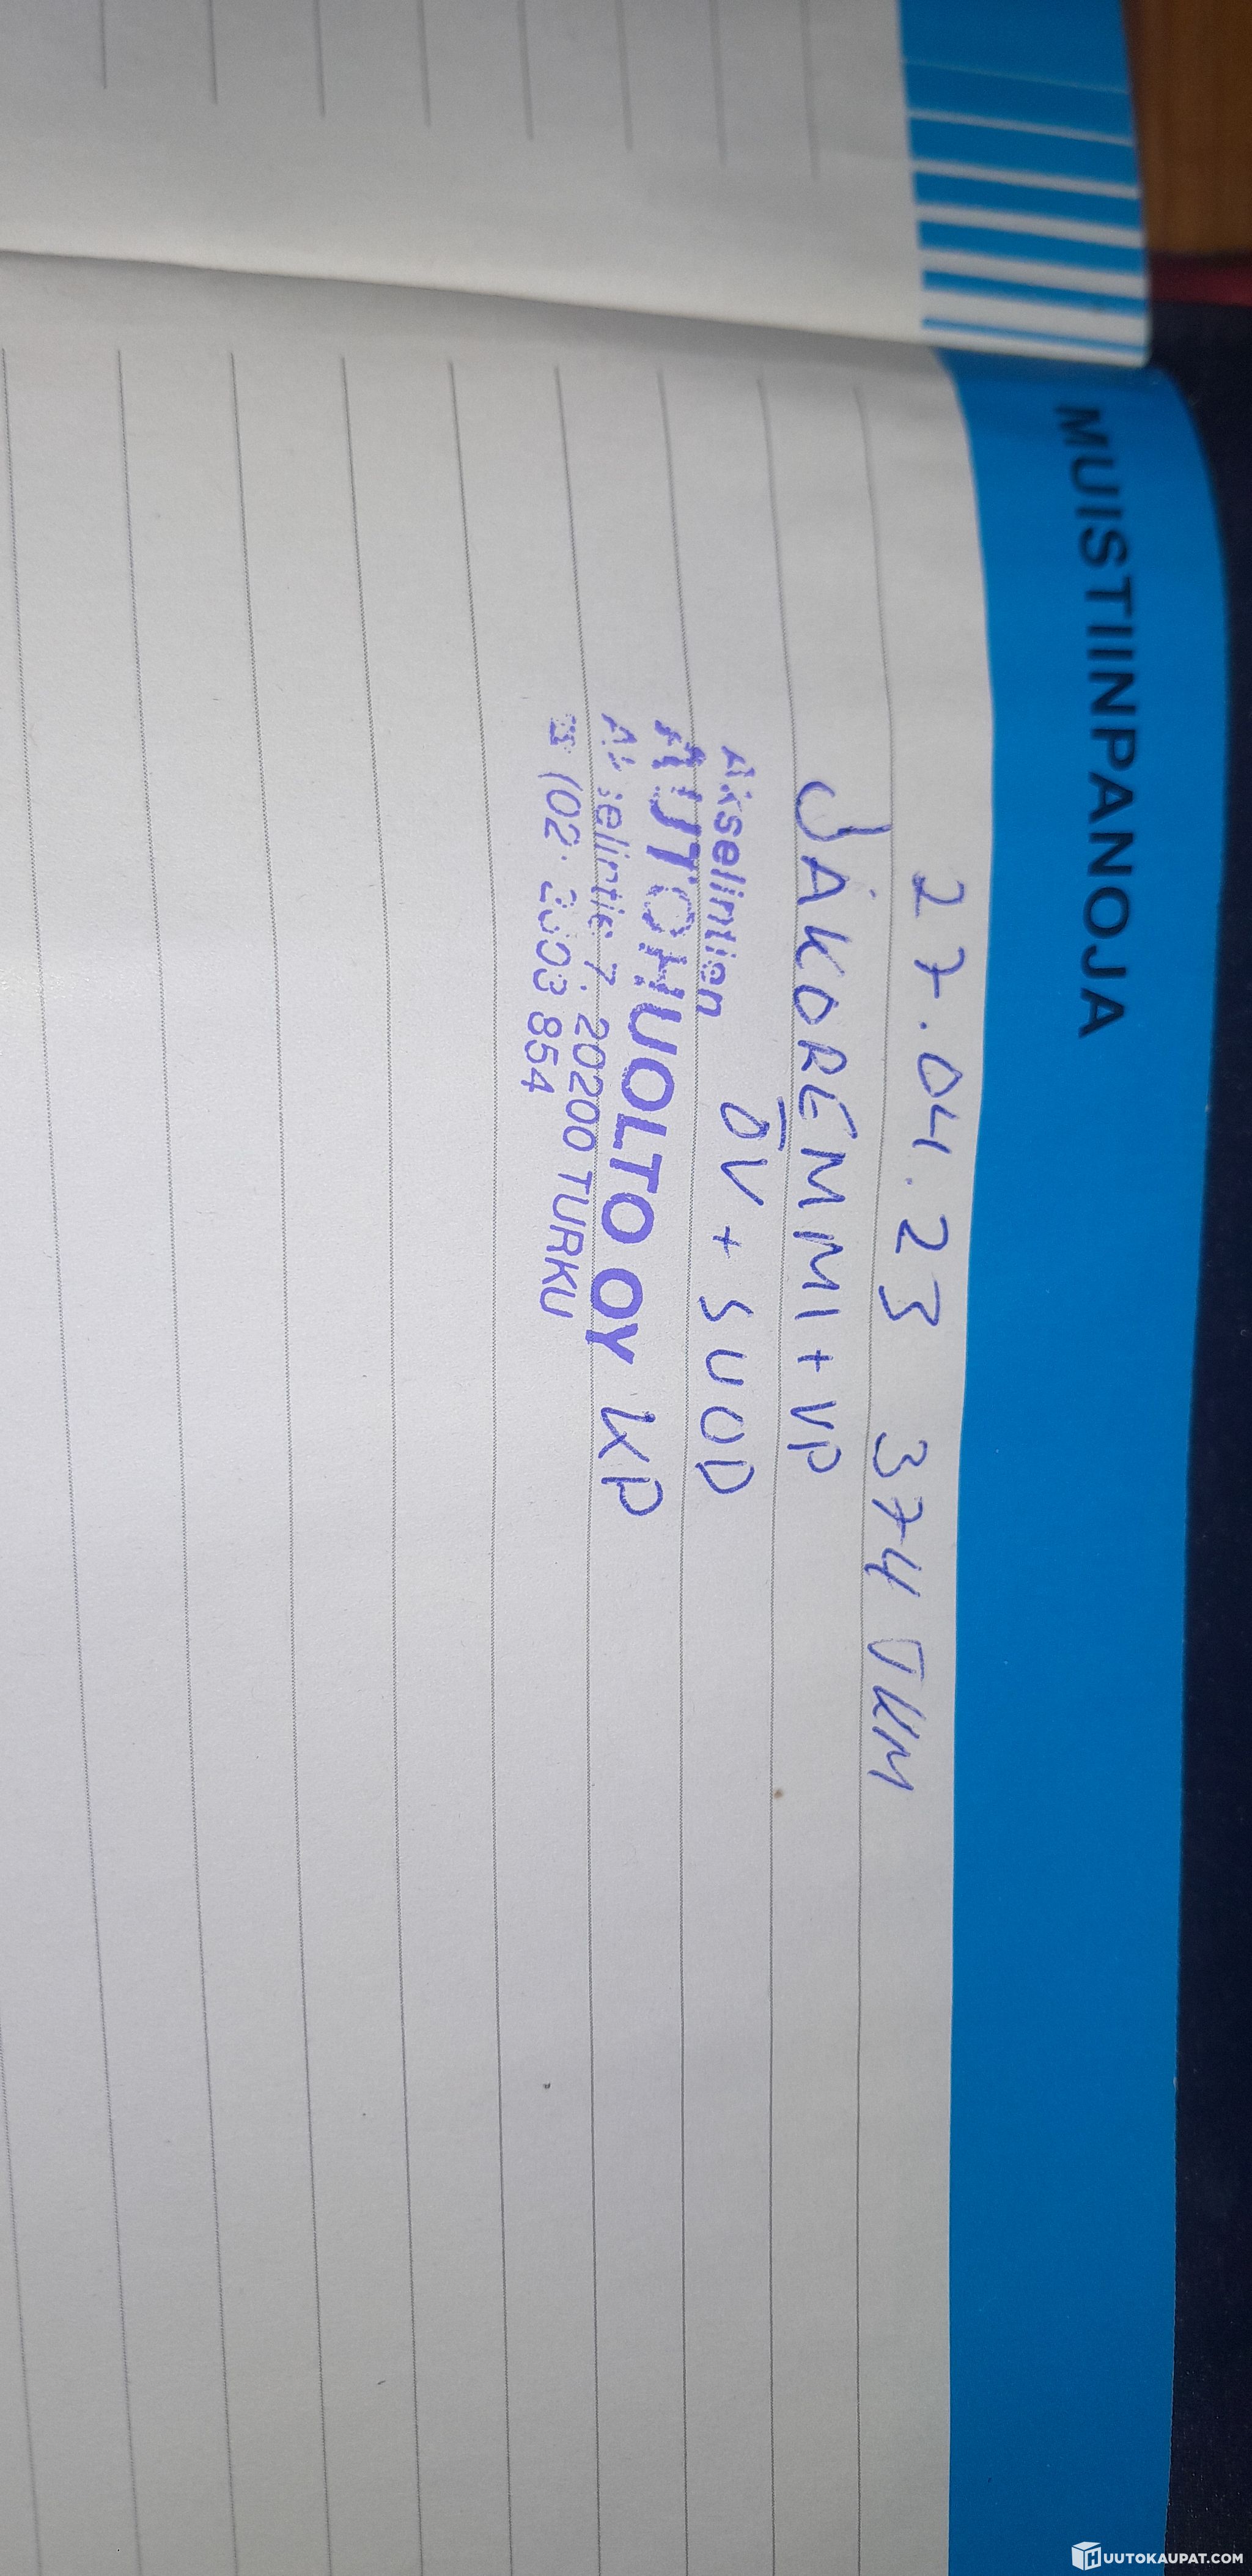 MUISTIINPANOJA
27.04.23 374 TKM
JAKOREMMI + VP
ÖV + SUOD
Aksellintien
AUTOHUOLTO OY KP
7, 20200 TURKU
(02) 2303 854
HUUTOKAUPAT.COM